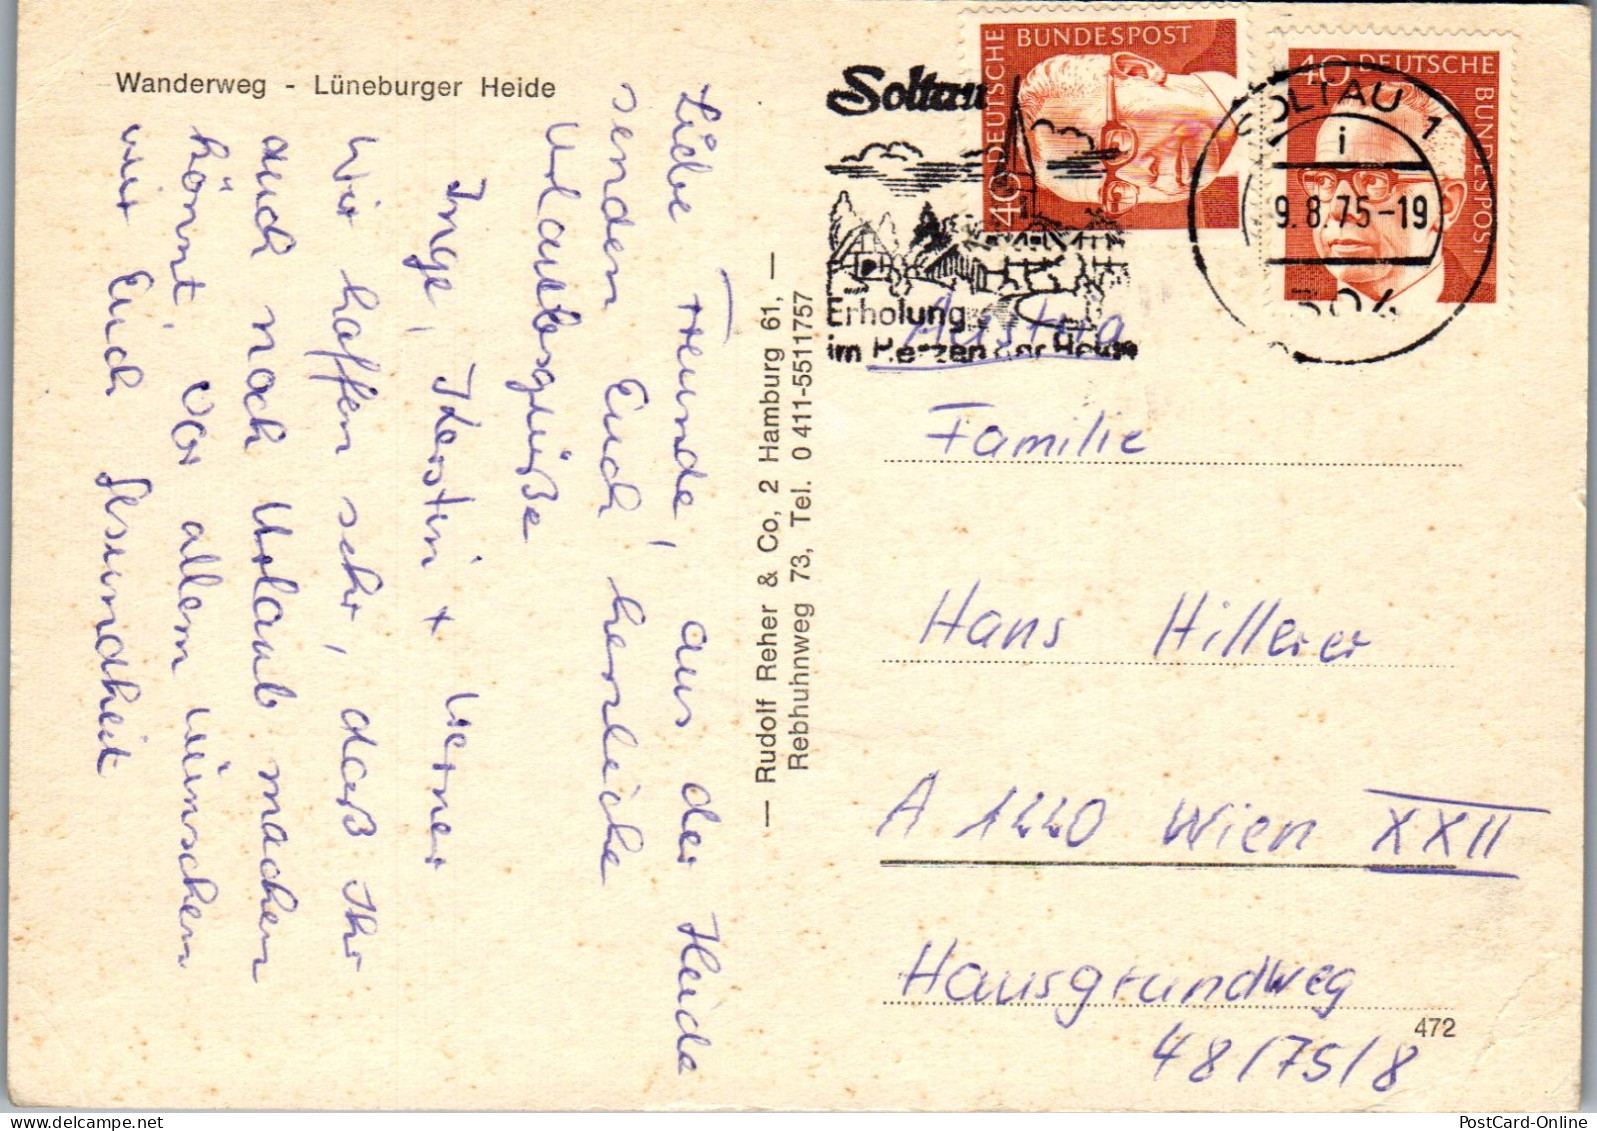 Wanderweg - Lüneburger Heide
Liebe Freunde, aus der Heide
senden Euch herzliche
Urlaubsgrüße
Inge, Kerstin + Werner
Wir hoffen sehr, daß Ihr
auch noch Urlaub machen
könnt. Vor allem wünschen
wir Euch Gesundheit
— Rudolf Reher & Co, 2 Hamburg 61, —
Rebhuhnweg 73, Tel. 0 411-5511757
Soltau
Erholung
im Herzen der Heide
DEUTSCHE BUNDESPOST
40
40 DEUTSCHE BUNDESPOST
SOLTAU 1
i
9.8.75-19
304
Austria
Familie
Hans Hillerer
A 1220 Wien XXII
Hausgrundweg
48/75/8
472
PostCard-Online